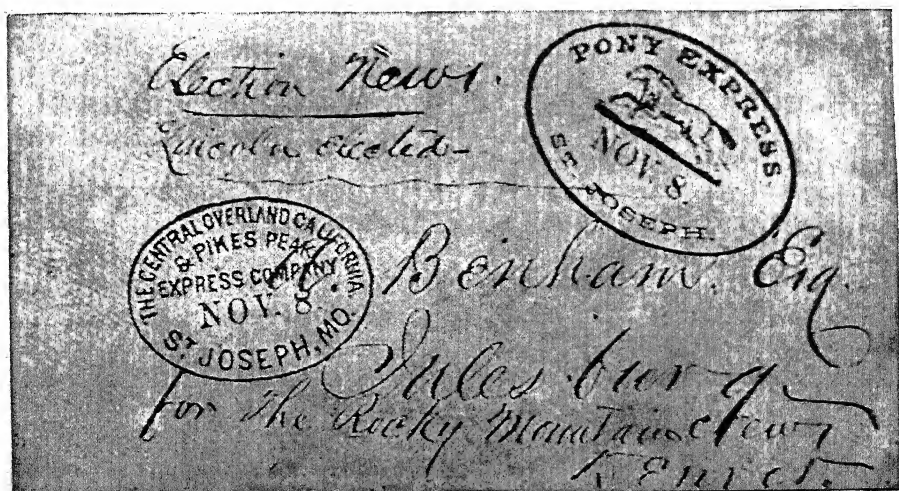 Election News.
Lincoln elected
PONY EXPRESS.
NOV. 8.
ST. JOSEPH.
THE CENTRAL OVERLAND CALIFORNIA
& PIKES PEAK
EXPRESS COMPANY
NOV. 8
ST JOSEPH, MO.
Benham. Esq.
Julesburg
for The Rocky Mountain News
Denver.